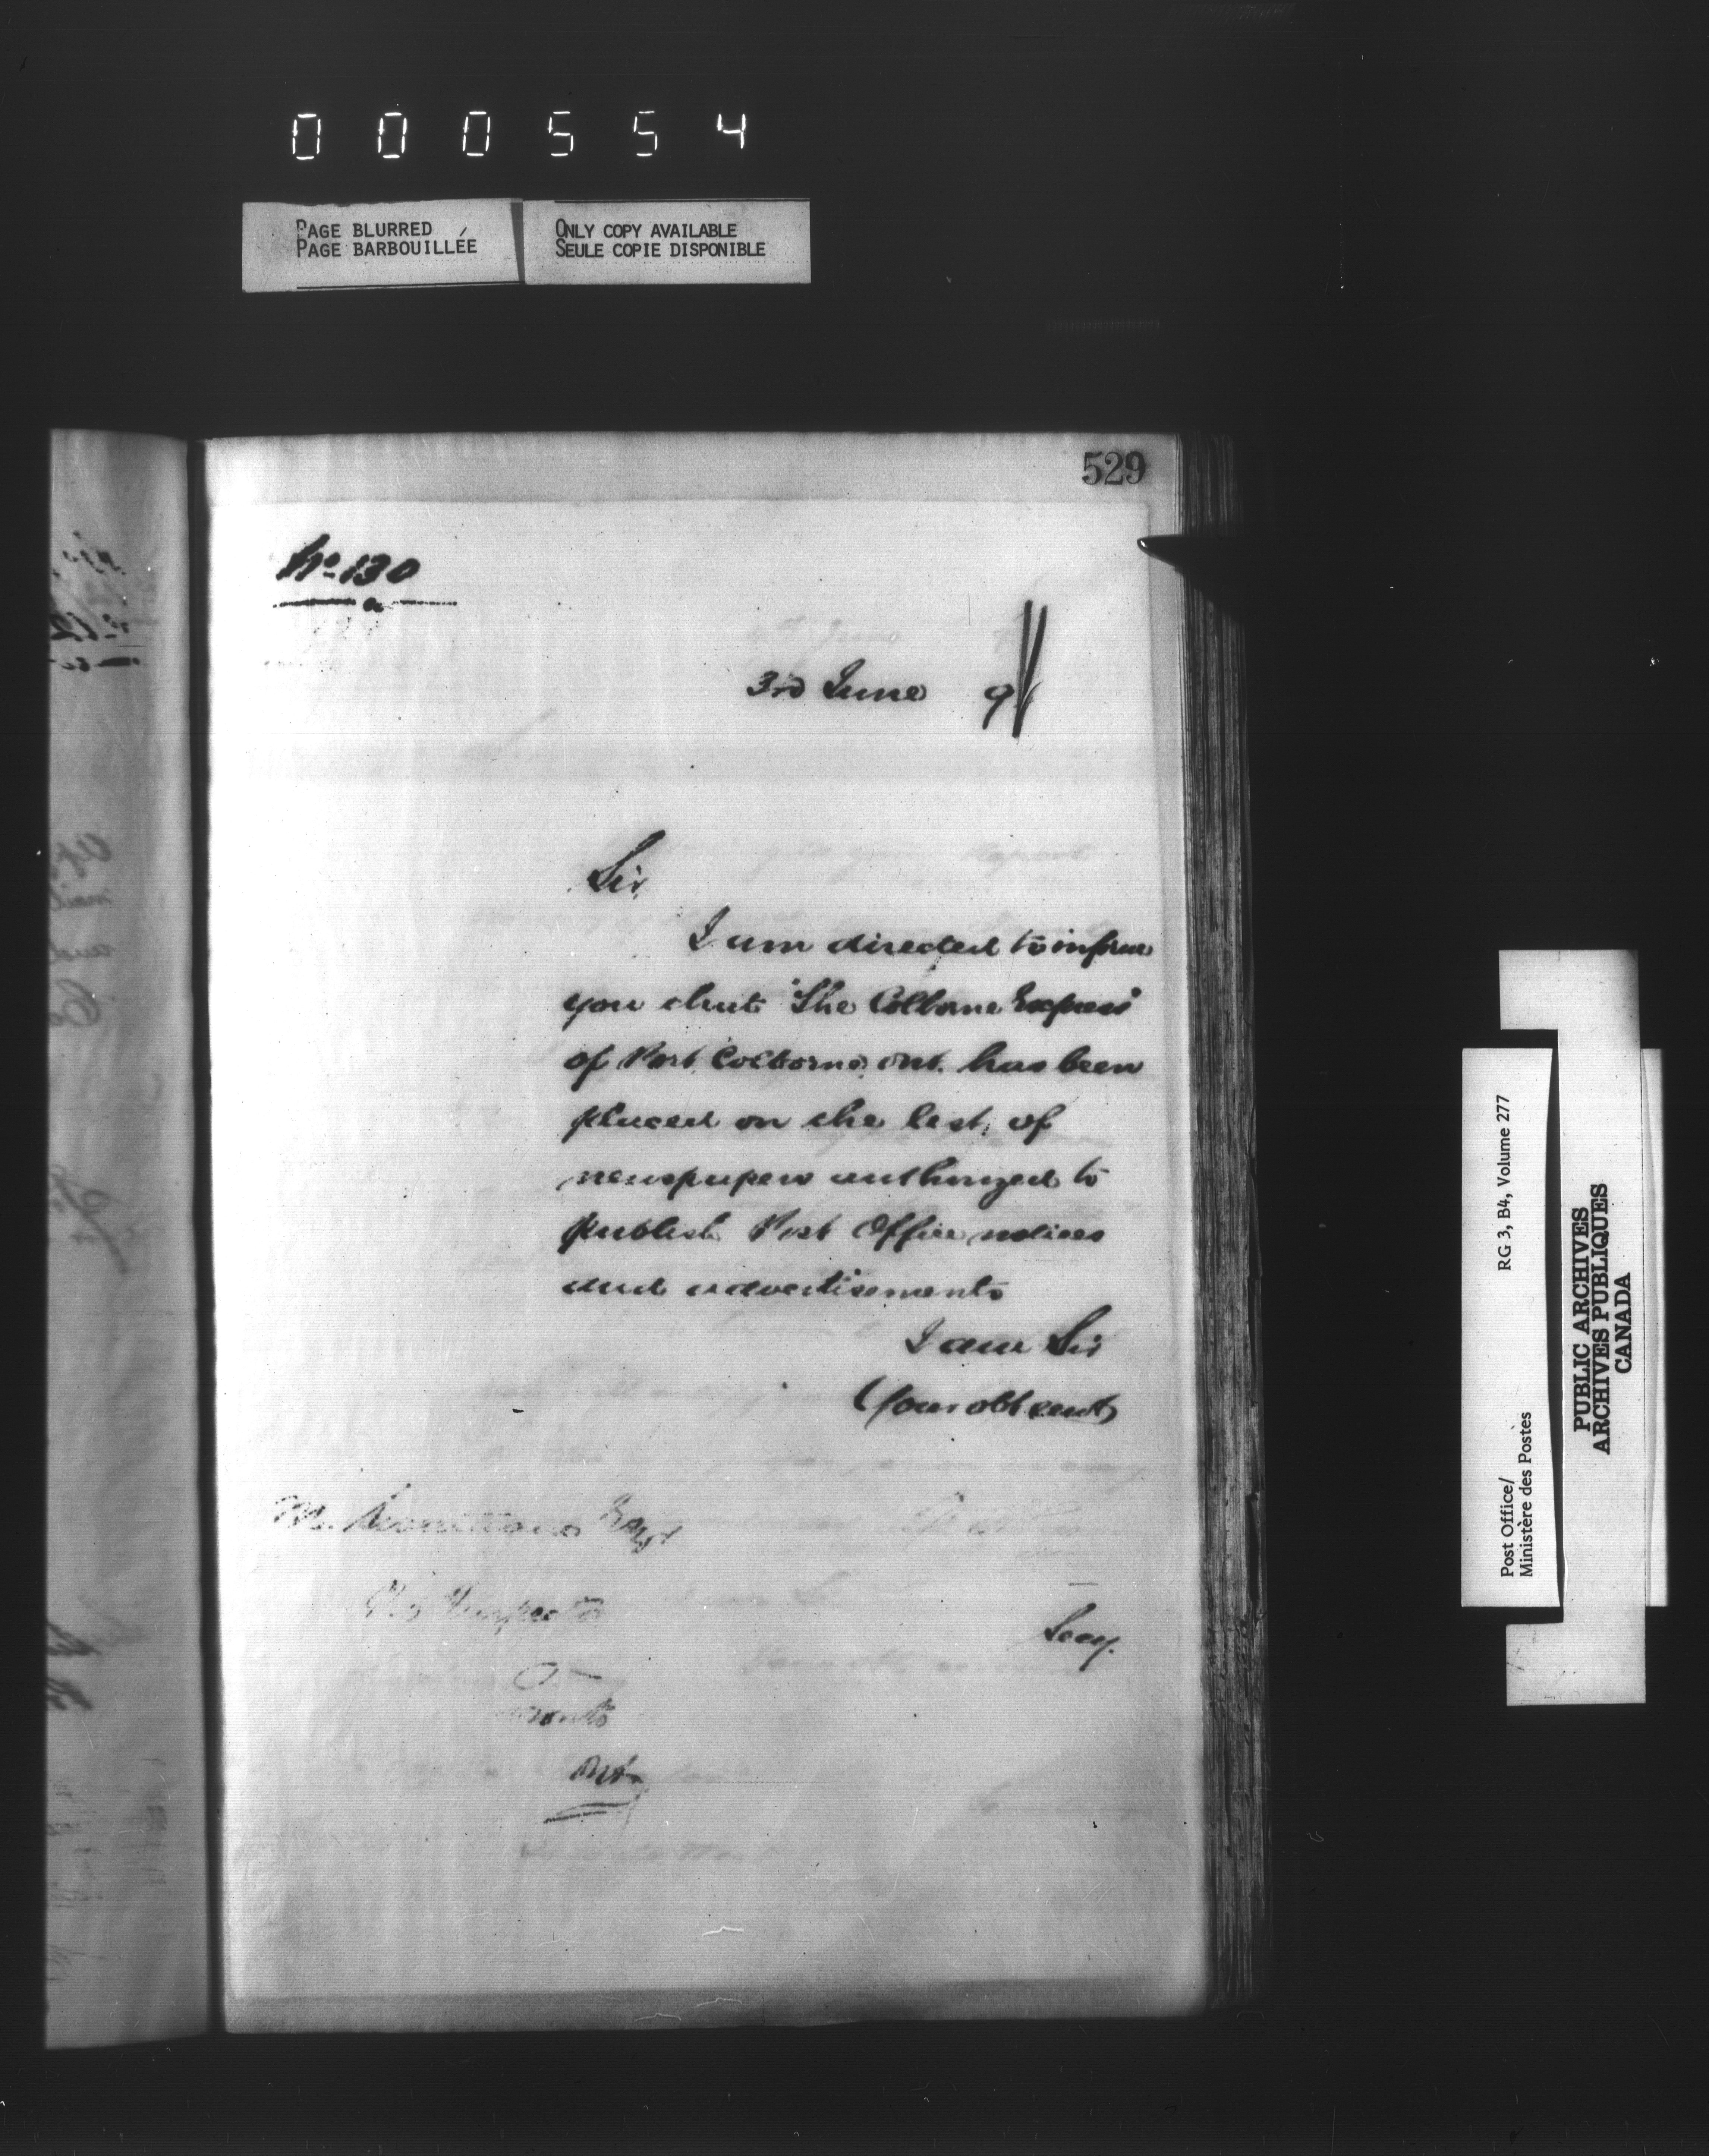 000554
PAGE BLURRED
PAGE BARBOUILLÉE
ONLY COPY AVAILABLE
SEULE COPIE DISPONIBLE
529
No. 130
3rd June 91
Sir,
I am directed to inform
you that "The Colborne Express"
of Port Colborne, Ont. has been
placed on the list of
newspapers authorized to
publish Post Office notices
and advertisements
I am Sir
Your obt servt
M. Esqr
P.O. Inspector
Toronto
Ont.
Secy.
RG 3, B4, Volume 277
Post Office/
Ministère des Postes
PUBLIC ARCHIVES
ARCHIVES PUBLIQUES
CANADA